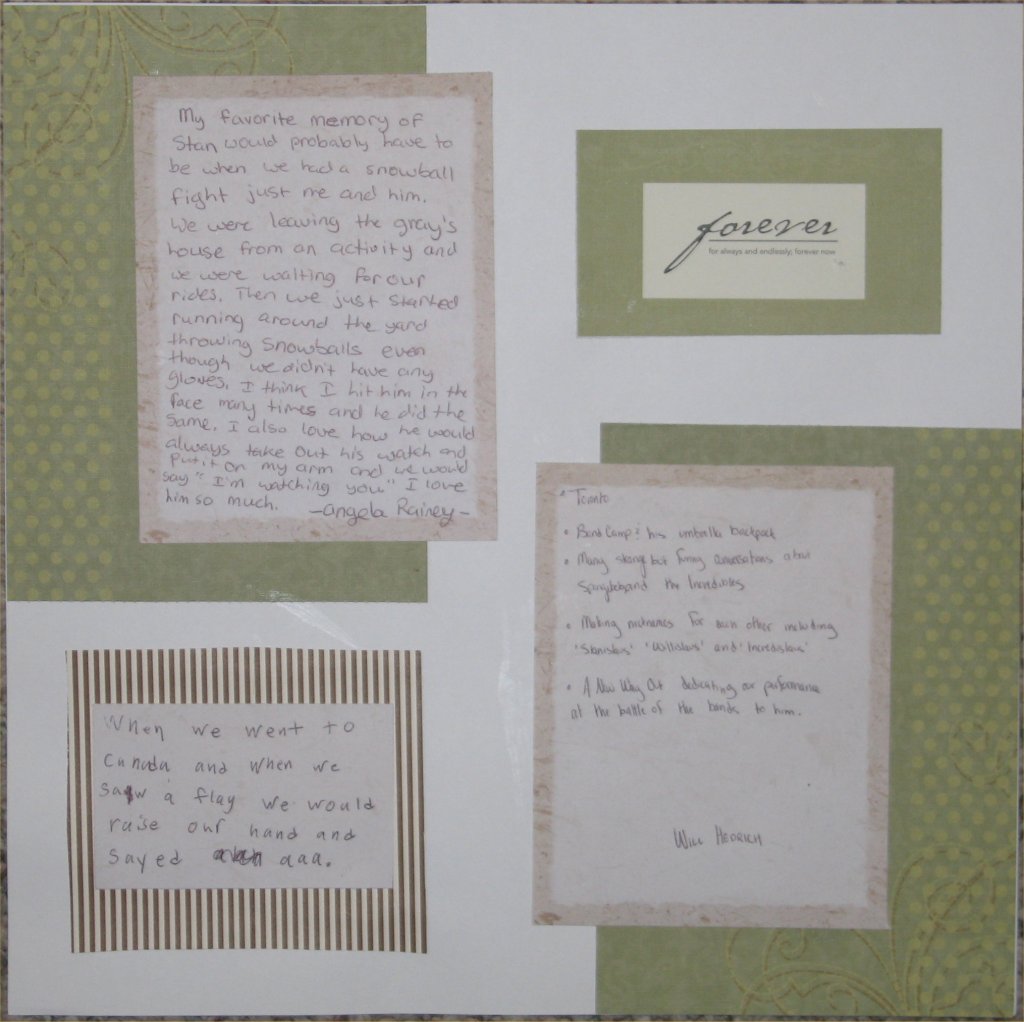 My favorite memory of
Stan would probably have to
be when we had a snowball
fight just me and him.
We were leaving the gray's
house from an activity and
we were waiting for our
rides. Then we just started
running around the yard
throwing snowballs even
though we didn't have any
gloves. I think I hit him in the
face many times and he did the
same. I also love how he would
always take out his watch and
put it on my arm and we would
say "I'm watching you" I love
him so much. -Angela Rainey-
forever
for always and endlessly; forever now
• Toronto
• Band Camp & his umbrella backpack
• Many strange but funny conversations about
Spongebob and the Incredibles
• Making nicknames for each other including
'Stanislavs' 'Willislavs' and 'Incredislavs'
• A New Way Out dedicating our performance
at the battle of the bands to him.
Will Hedrich
When we went to
Canada and when we
saw a flag we would
raise our hand and
sayed aaa.